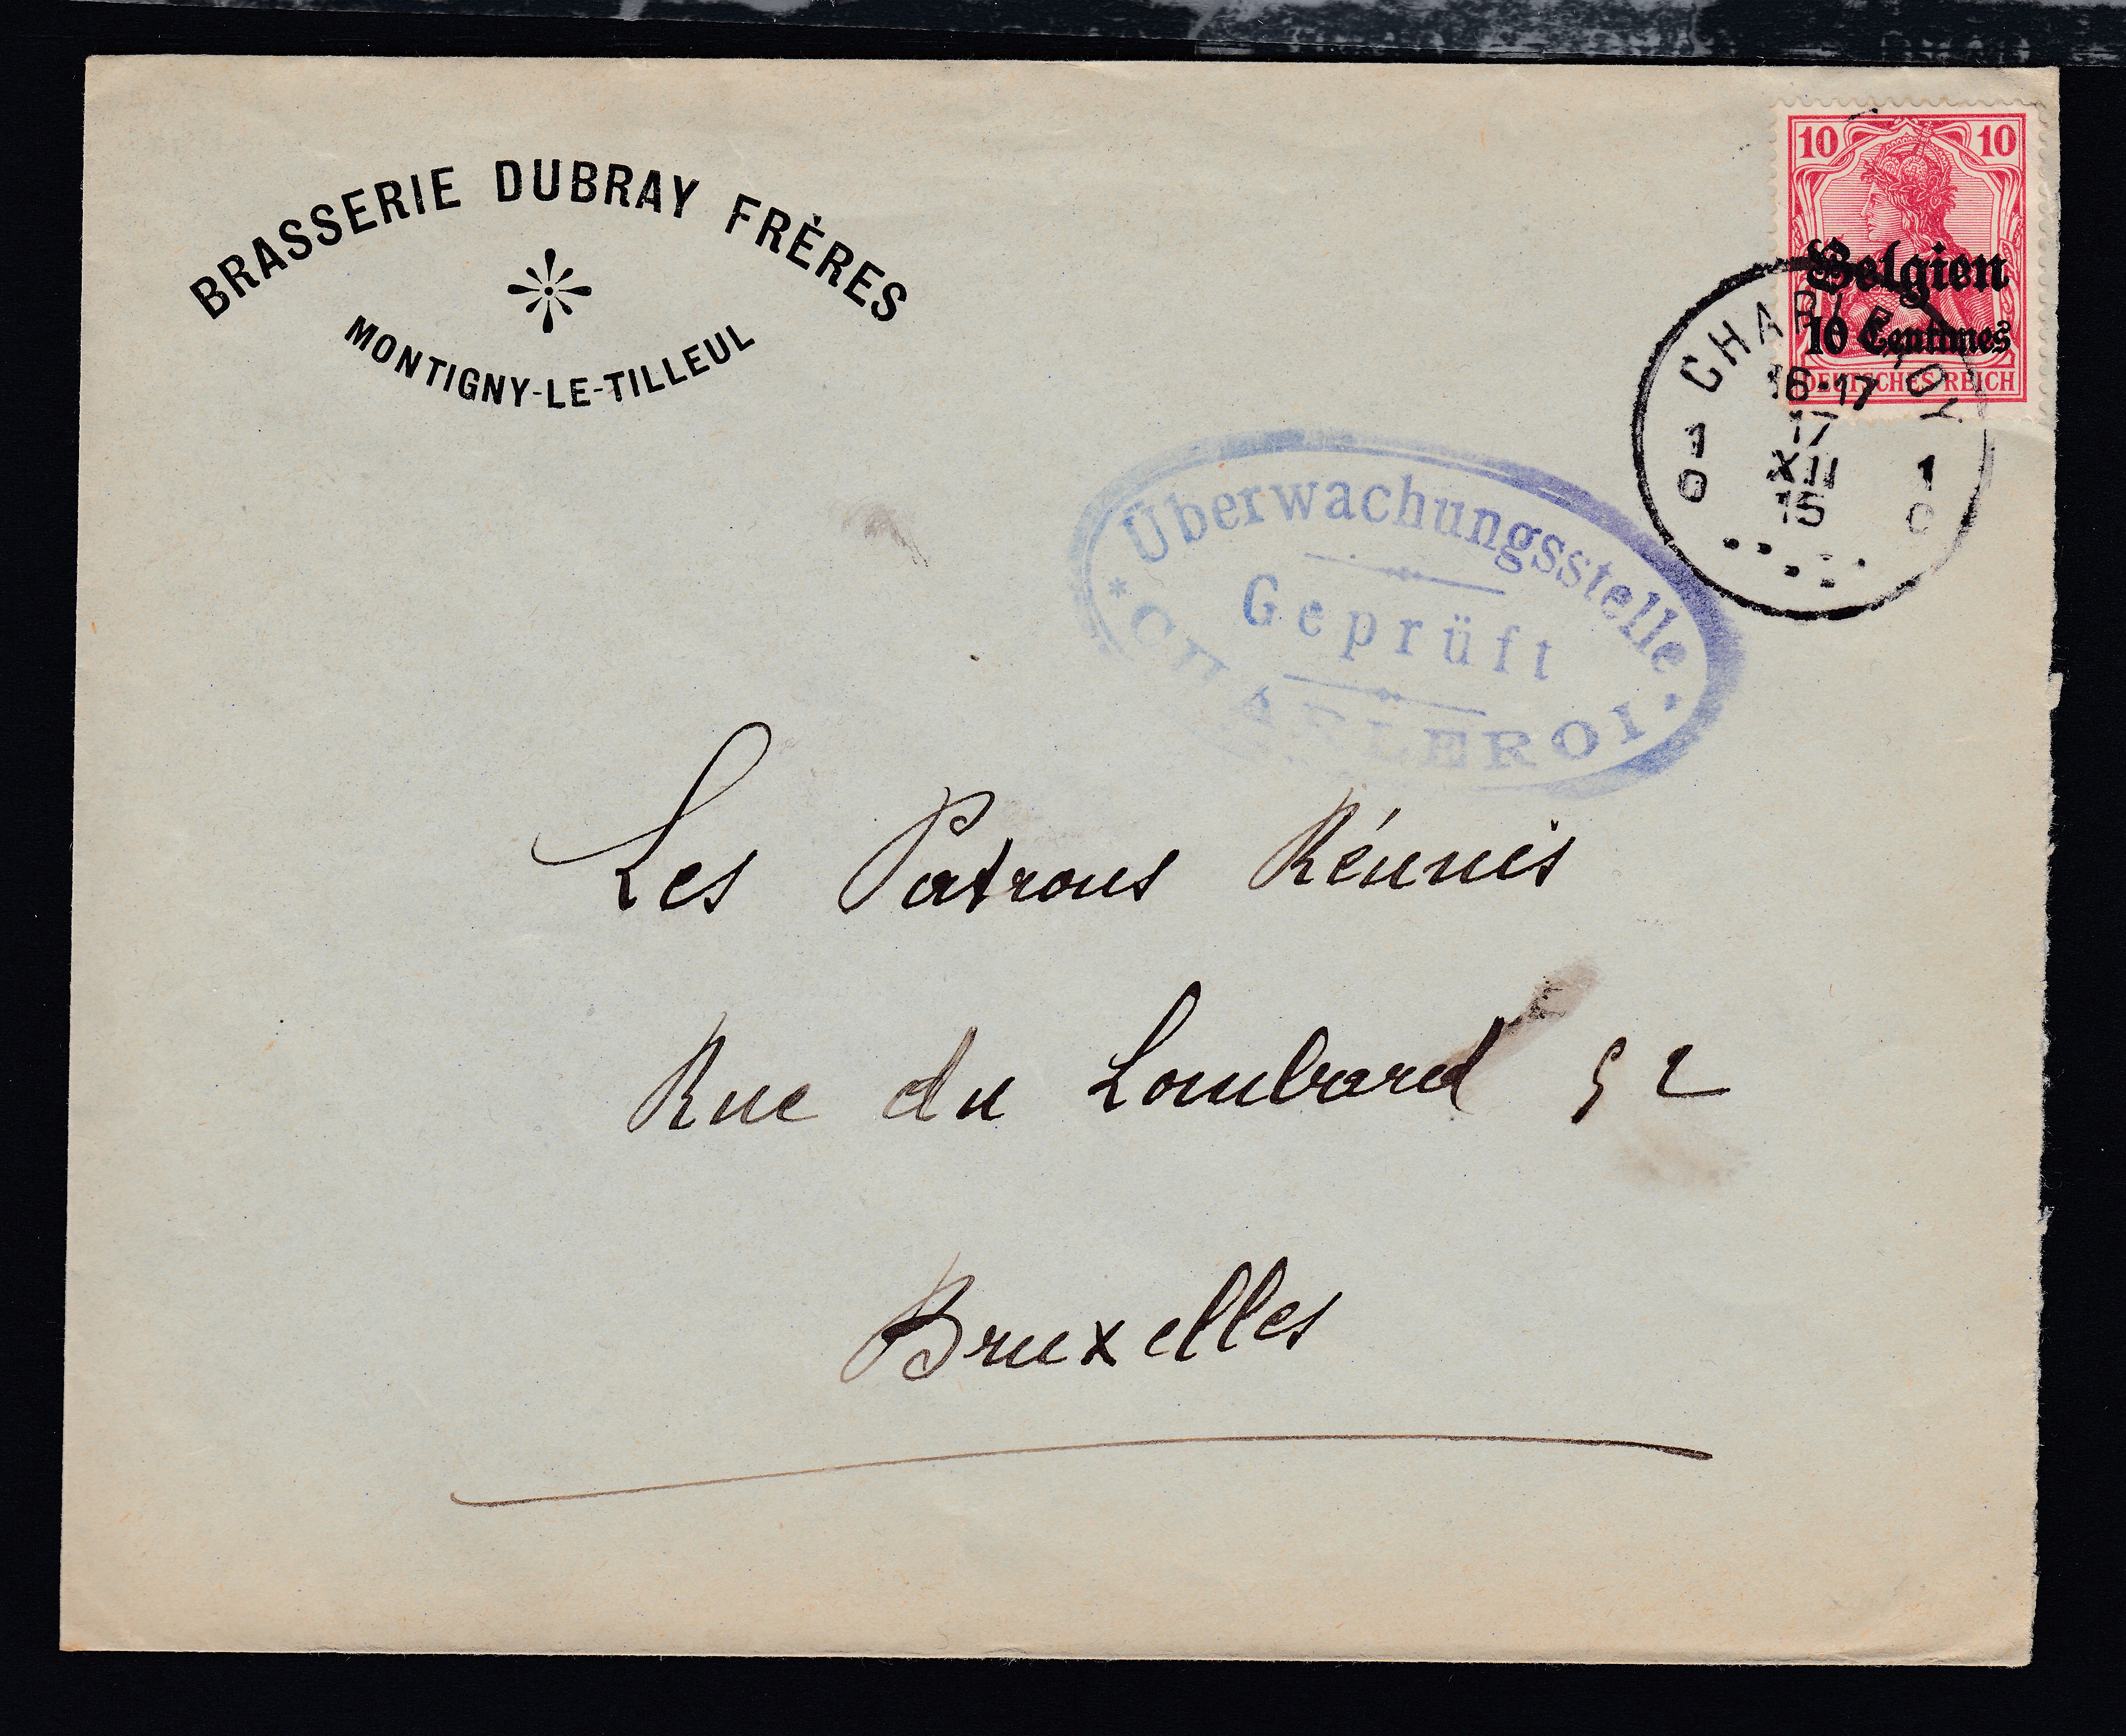 BRASSERIE DUBRAY FRÈRES
MONTIGNY-LE-TILLEUL
10 10
Belgien
10 Centimes
DEUTSCHES REICH
CHARLEROY
16-17
1 17 1
XII
0 15 0
Überwachungsstelle
Geprüft
CHARLEROI
Les Patrons Réunis
Rue du Lombard 52
Bruxelles